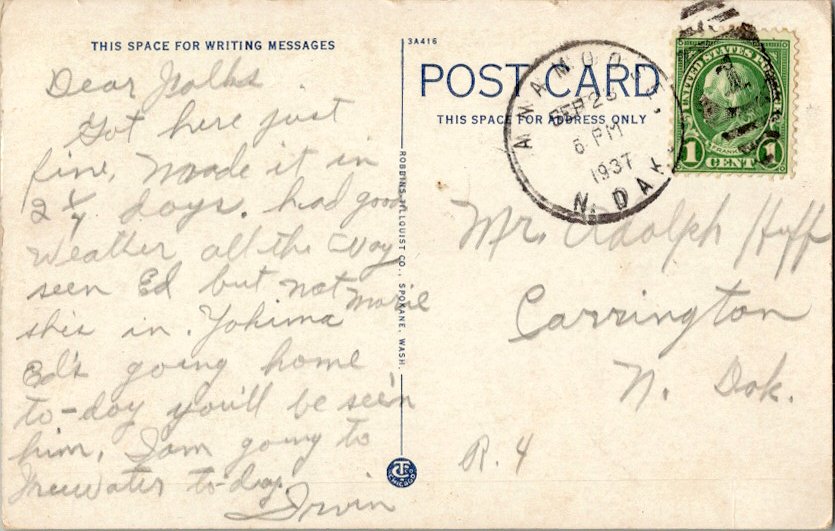 THIS SPACE FOR WRITING MESSAGES
Dear Folks
Got here just
fine, Made it in
2 1/4 days. had good
weather all the way
seen Ed but not Marie
shes in. Yakima
Ed's going home
to-day you'll be see'n
him, I am going to
Freewater to-day.
Irvin
3A416
POST CARD
THIS SPACE FOR ADDRESS ONLY
ROBBINS-TILLQUIST CO., SPOKANE, WASH.
ANAMOOSE,
SEP 23
6 PM
1937
N. DAK.
UNITED STATES POSTAGE
1 CENT 1
Mr. Adolph Huff
Carrington
N. Dak.
R. 4
CHICAGO